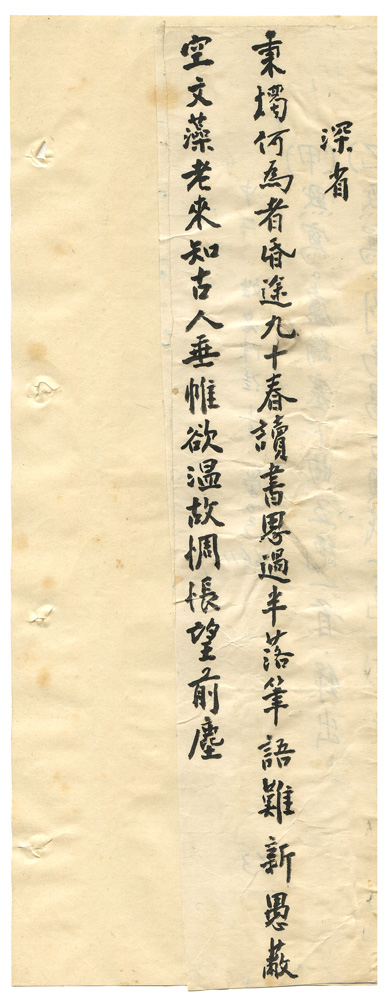 深省
秉燭何為者昏途九十春讀書思過半落筆語難新愚蔽
空文藻老來知古人垂帷欲温故惆悵望前塵